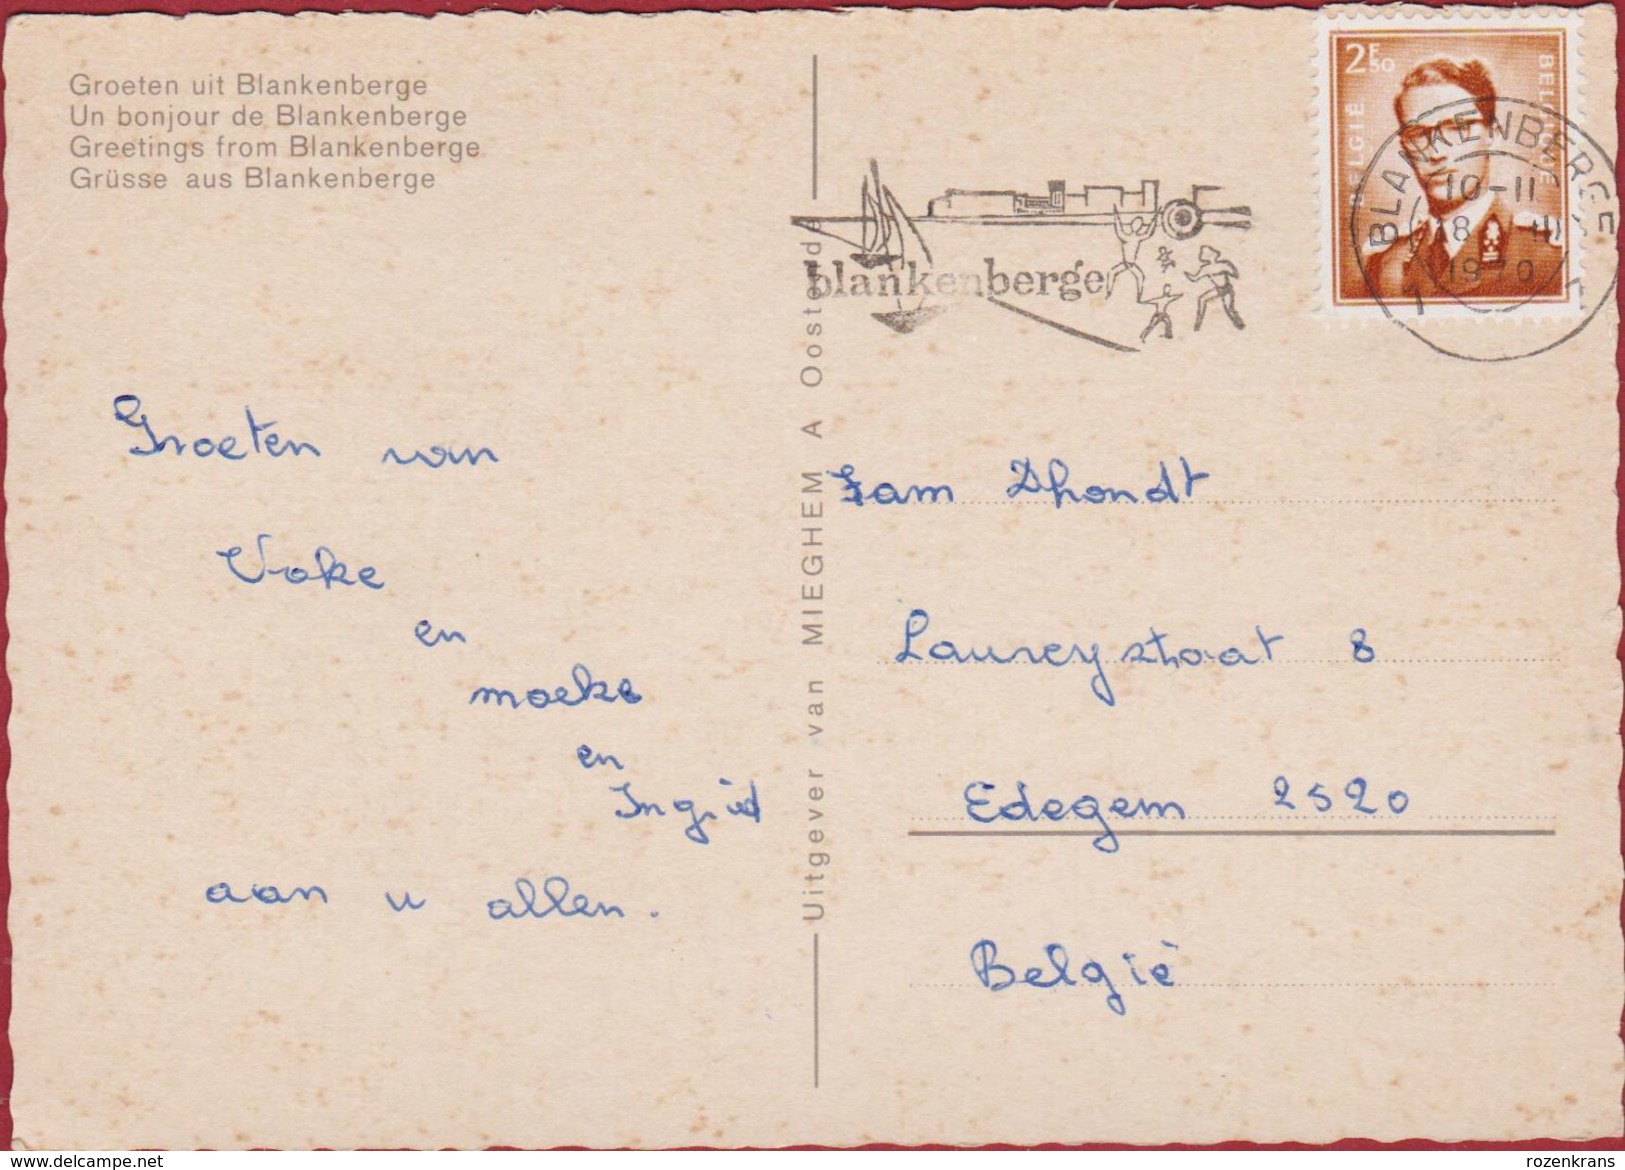 Groeten uit Blankenberge
Un bonjour de Blankenberge
Greetings from Blankenberge
Grüsse aus Blankenberge
Groeten van
Voke
en
moeke
en
Ingrid
aan u allen.
Uitgever van MIEGHEM A Oostende
blankenberge
2F50
BELGIË
BELGIQUE
BLANKENBERGE
10-11
18 III
1970
1
Fam Dhondt
Laureystraat 8
Edegem 2520
België
delcampe.net
rozenkrans